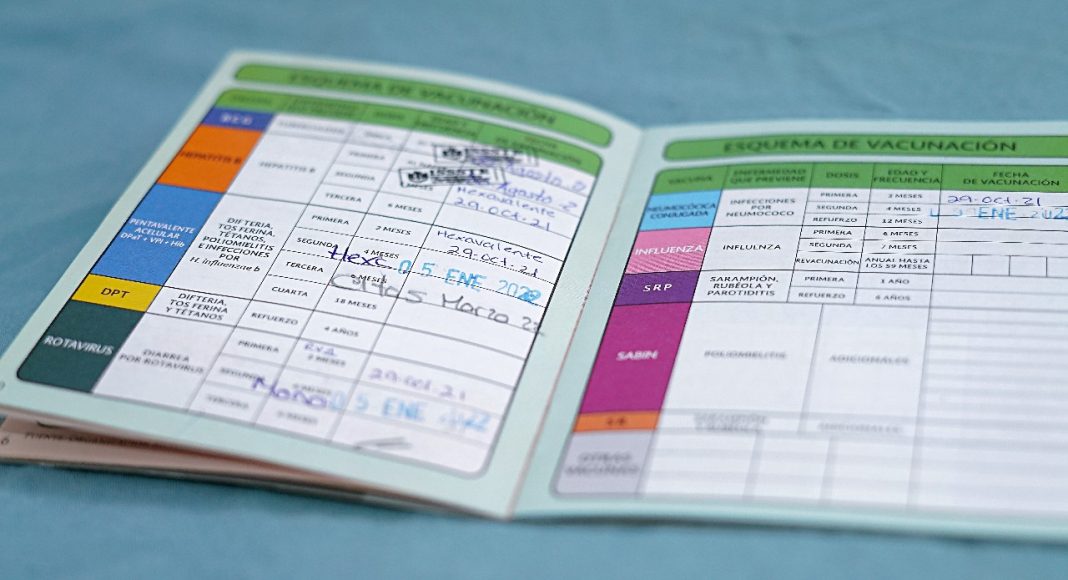 ESQUEMA DE VACUNACIÓN
BCG
HEPATITIS B
HEPATITIS B
PRIMERA
SEGUNDA
TERCERA
6 MESES
Hexavalente
29.Oct.21
PENTAVALENTE
ACELULAR
DPaT + VPI + Hib
DIFTERIA,
TOS FERINA,
TÉTANOS,
POLIOMIELITIS
E INFECCIONES
POR
H. influenzae b
PRIMERA
2 MESES
Hexavalente
29.Oct.21
SEGUNDA
4 MESES
05 ENE 2022
TERCERA
Marzo 22
CUARTA
18 MESES
DPT
DIFTERIA,
TOS FERINA
Y TÉTANOS
REFUERZO
4 AÑOS
ROTAVIRUS
DIARREA
POR ROTAVIRUS
PRIMERA
2 MESES
29.Oct.21
SEGUNDA
05 ENE 2022
TERCERA
ESQUEMA DE VACUNACIÓN
VACUNA
ENFERMEDAD
QUE PREVIENE
DOSIS
EDAD Y
FRECUENCIA
FECHA
DE VACUNACIÓN
NEUMOCÓCICA
CONJUGADA
INFECCIONES
POR
NEUMOCOCO
PRIMERA
2 MESES
29.Oct.21
SEGUNDA
4 MESES
05 ENE 2022
REFUERZO
12 MESES
INFLUENZA
INFLUENZA
PRIMERA
6 MESES
SEGUNDA
7 MESES
REVACUNACIÓN
ANUAL HASTA
LOS 59 MESES
SRP
SARAMPIÓN,
RUBÉOLA Y
PAROTIDITIS
PRIMERA
1 AÑO
REFUERZO
6 AÑOS
SABIN
POLIOMIELITIS
ADICIONALES
SR
SARAMPIÓN
Y RUBÉOLA
ADICIONALES
OTRAS
VACUNAS